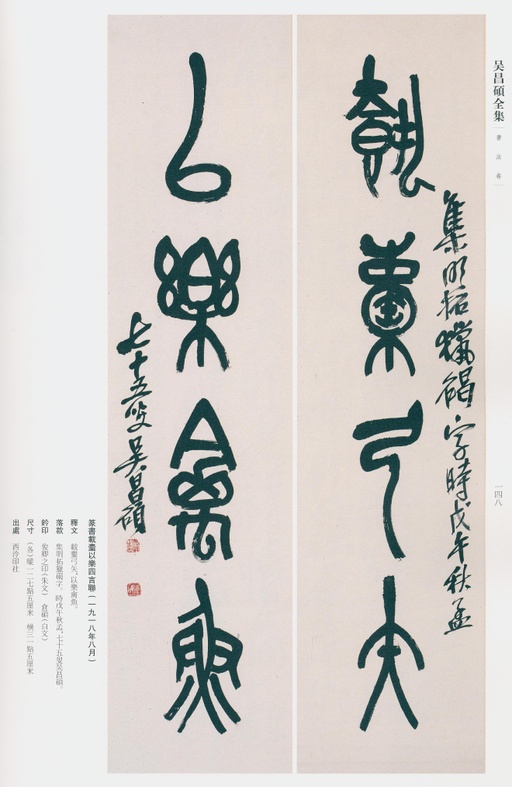 吴昌碩全集
書法卷
一四八
載櫜弓矢
集明拓獵碣字時戊午秋孟
以樂禽魚
七十五叟吳昌碩
篆書載櫜以樂四言聯(一九一八年八月)
釋文 載櫜弓矢,以樂禽魚。
落款 集明拓獵碣字,時戊午秋孟,七十五叟吴昌碩。
鈐印 俊卿之印(朱文) 倉碩(白文)
尺寸 (各)縱一二七點五厘米 橫三一點五厘米
出處 西泠印社